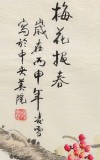 梅花报春
岁在丙申年凌雪
写於中央美院